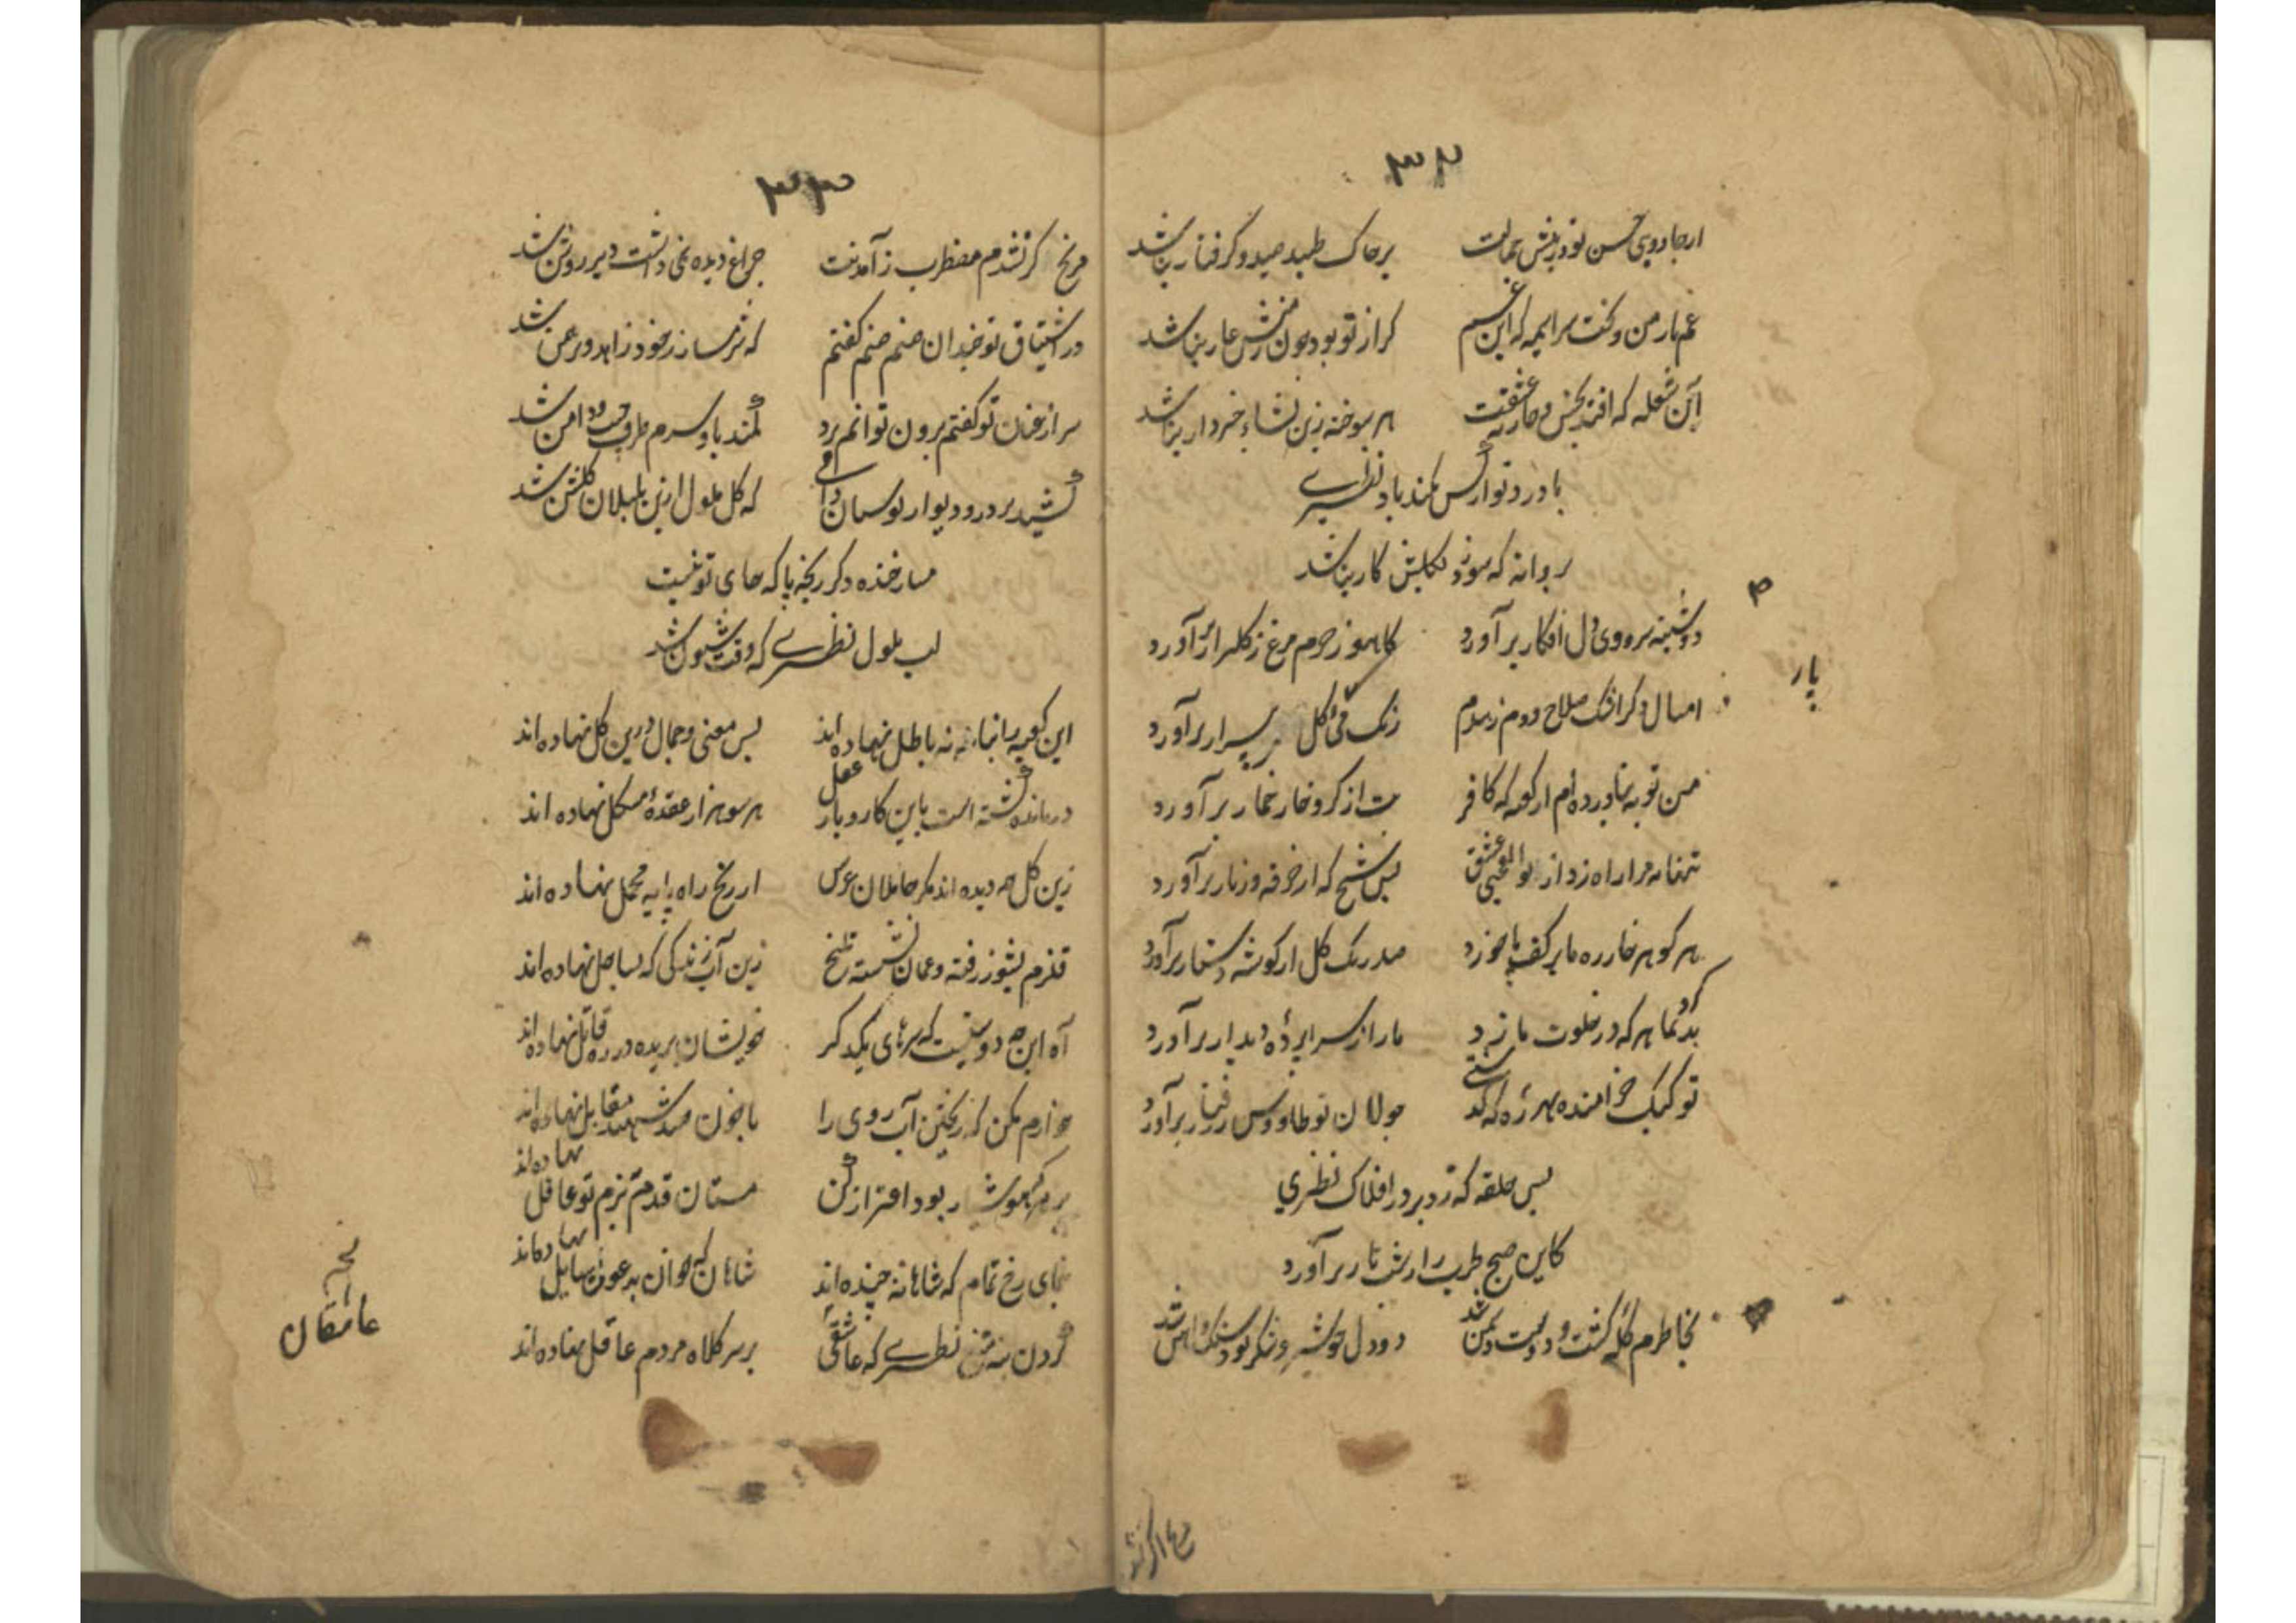 ۳۲
از جادویی حسن تو در پیش جمالت بر خاک طپد صید و گرفتار نباشد
غم بار من و کنت سراپمه که این غم کز از تو بود چون منش عار نباشد
آن شعله که افتد بخس و خار عشقت هر سوخته زین نشاء خبردار نباشد
با درد تو از کس نکند یاد نظیری
پروانه که سوزد بکسش کار نباشد
دوشینه سرودی دل افکار برآورد کاهو ز حرم مرغ ز گلزار برآورد
امسال دگر اشک صلاح و ورم زهدم رنگ می گل پار برآورد
پار
من توبه نیاورده ام از کعبه که کافر مست از گرو خار خمار برآورد
تنها نه مرا راه زد از بوالعجبی عشق بس شیخ که از خرقه و زنار برآورد
هر کو سر خار ره ما بر کف پا خورد صد رنگ گل از گوشه دستار برآورد
بد کرد نما هر که در خلوت ما زد ما را ز سراپرده دیدار برآورد
تو کبک خرامنده بهر ره که گذشتی جولان تو طاووس ز رفتار برآورد
بس حلقه که زد بر در افلاک نظیری
کاین صبح طرب را ز شب تار برآورد
بخاطرم گله گشت و دوست دشمن شد دود دل
مرا کر نشد
۳۳
مرنج گر نشدم مضطرب ز آمدنت چراغ دیده نمی داشت دیر روشن شد
در اشتیاق تو چندان صنم صنم گفتم که شرمسار ز خود زاهد و برهمن شد
سر از عنان تو گفتم برون توانم برد کمند یاد سرم طرف جیب و دامن شد
کشید بر در و دیوار بوستان دامی که گل ملول ازین بلبلان گلشن شد
مساز خنده دگر رنجه پا که جای تو نیست
لب ملول نظیری که وقت شیون شد
این کعبه را بنا نه به باطل نهاده اند بس معنی و جمال درین گل نهاده اند
درمانده گشته است باین کار و بار عقل هر سو هزار عقده مشکل نهاده اند
زین گل چه دیده اند مگر حاملان عرش از رنج راه پایه محمل نهاده اند
قلزم بشور رفته و عمان نشسته تلخ زین آب زندگی که بساحل نهاده اند
آه این چه دوستیست که سرهای یکدگر خویشان بریده در ره قاتل نهاده اند
خوارم مکن که ریختن آب روی را با خون صد شهید مقابل نهاده اند
بر مردم هوشیار بود احتراز کن مستان قدم ببزم تو غافل نهاده اند
بنمای رخ تمام که شاهانه چیده اند شاهان که خوان بدعوت سایل نهاده اند
گردن بنه بتیغ نظیری که عاشقی بر سر کلاه مردم عاقل نهاده اند
عاشقان